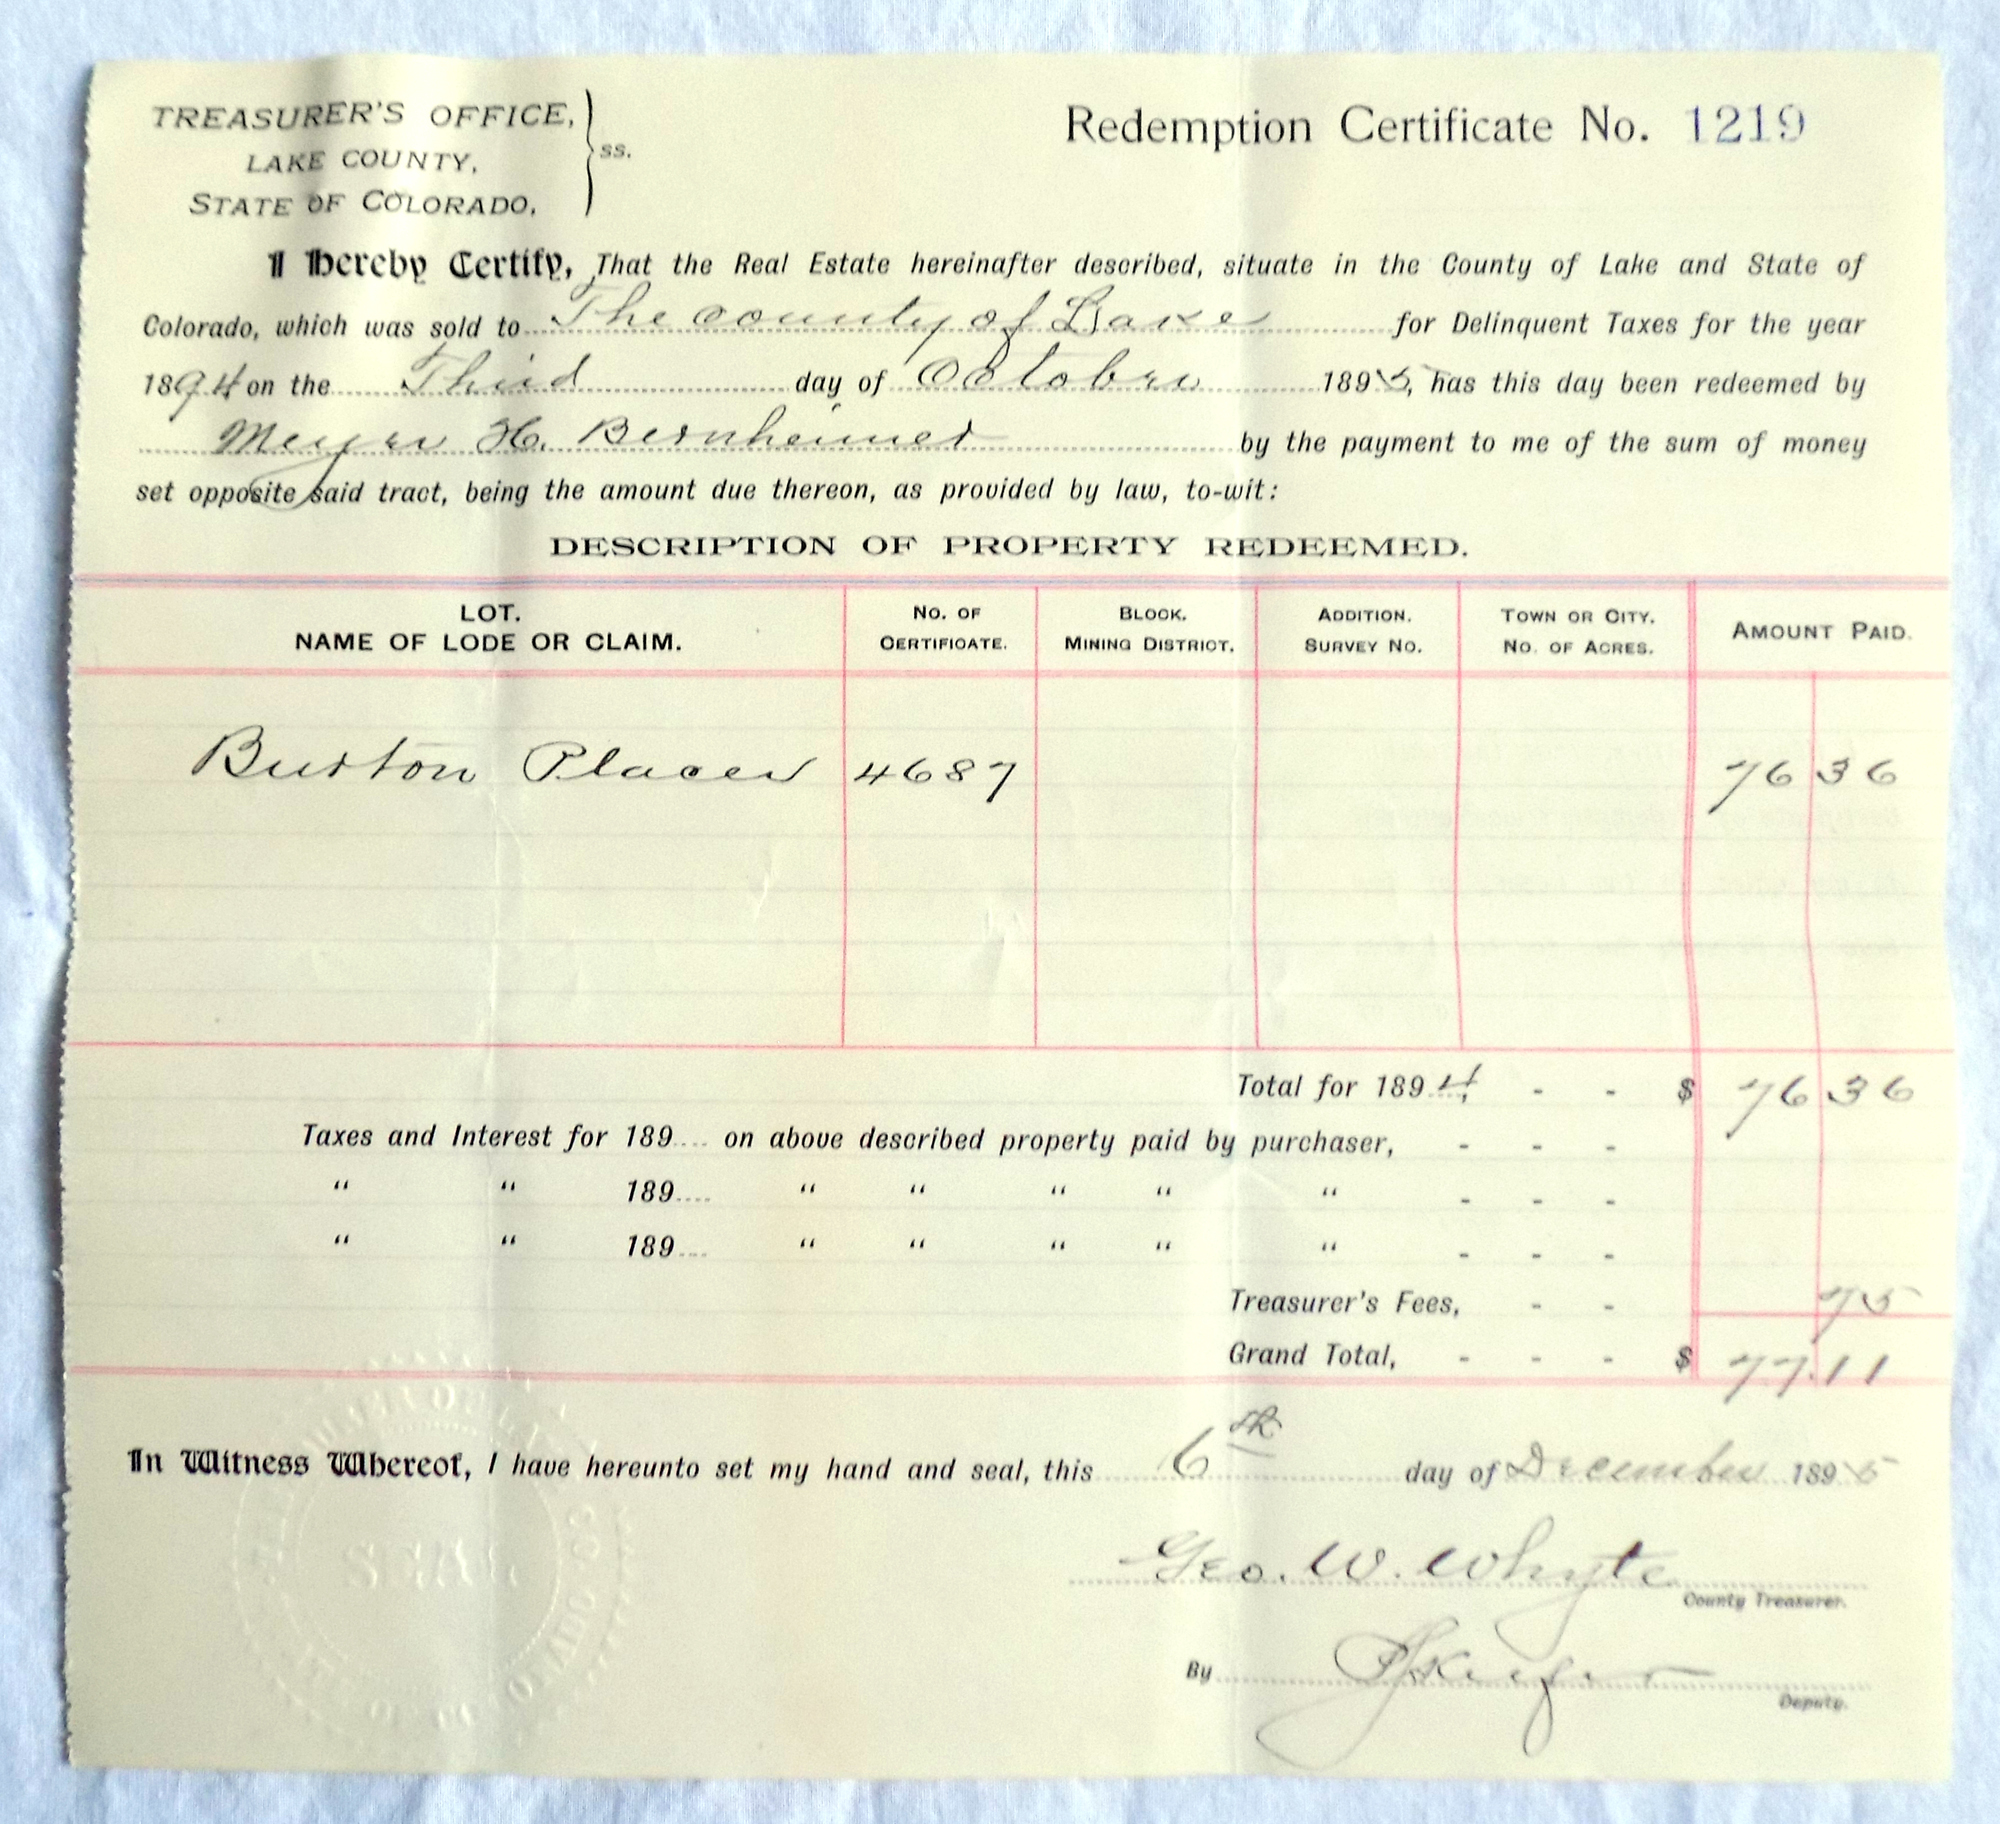 TREASURER'S OFFICE,
LAKE COUNTY, ss.
STATE OF COLORADO,
Redemption Certificate No. 1219
I hereby Certify, That the Real Estate hereinafter described, situate in the County of Lake and State of
Colorado, which was sold to The county of Lake for Delinquent Taxes for the year
1894 on the Third day of October 1895, has this day been redeemed by
Meyer H. Bernheimer by the payment to me of the sum of money
set opposite said tract, being the amount due thereon, as provided by law, to-wit:
DESCRIPTION OF PROPERTY REDEEMED.
LOT. NO. OF BLOCK. ADDITION. TOWN OR CITY. AMOUNT PAID.
NAME OF LODE OR CLAIM. CERTIFICATE. MINING DISTRICT. SURVEY NO. NO. OF ACRES.
Burton Placer 4687 76 36
Total for 1894, - - $ 76 36
Taxes and Interest for 189.... on above described property paid by purchaser, - - -
" " 189.... " " " " " - - -
" " 189.... " " " " " - - -
Treasurer's Fees, - - 75
Grand Total, - - - $ 77.11
In Witness Whereof, I have hereunto set my hand and seal, this 6th day of December 1895
Geo. W. Whyte
County Treasurer.
By
Deputy.
SEAL